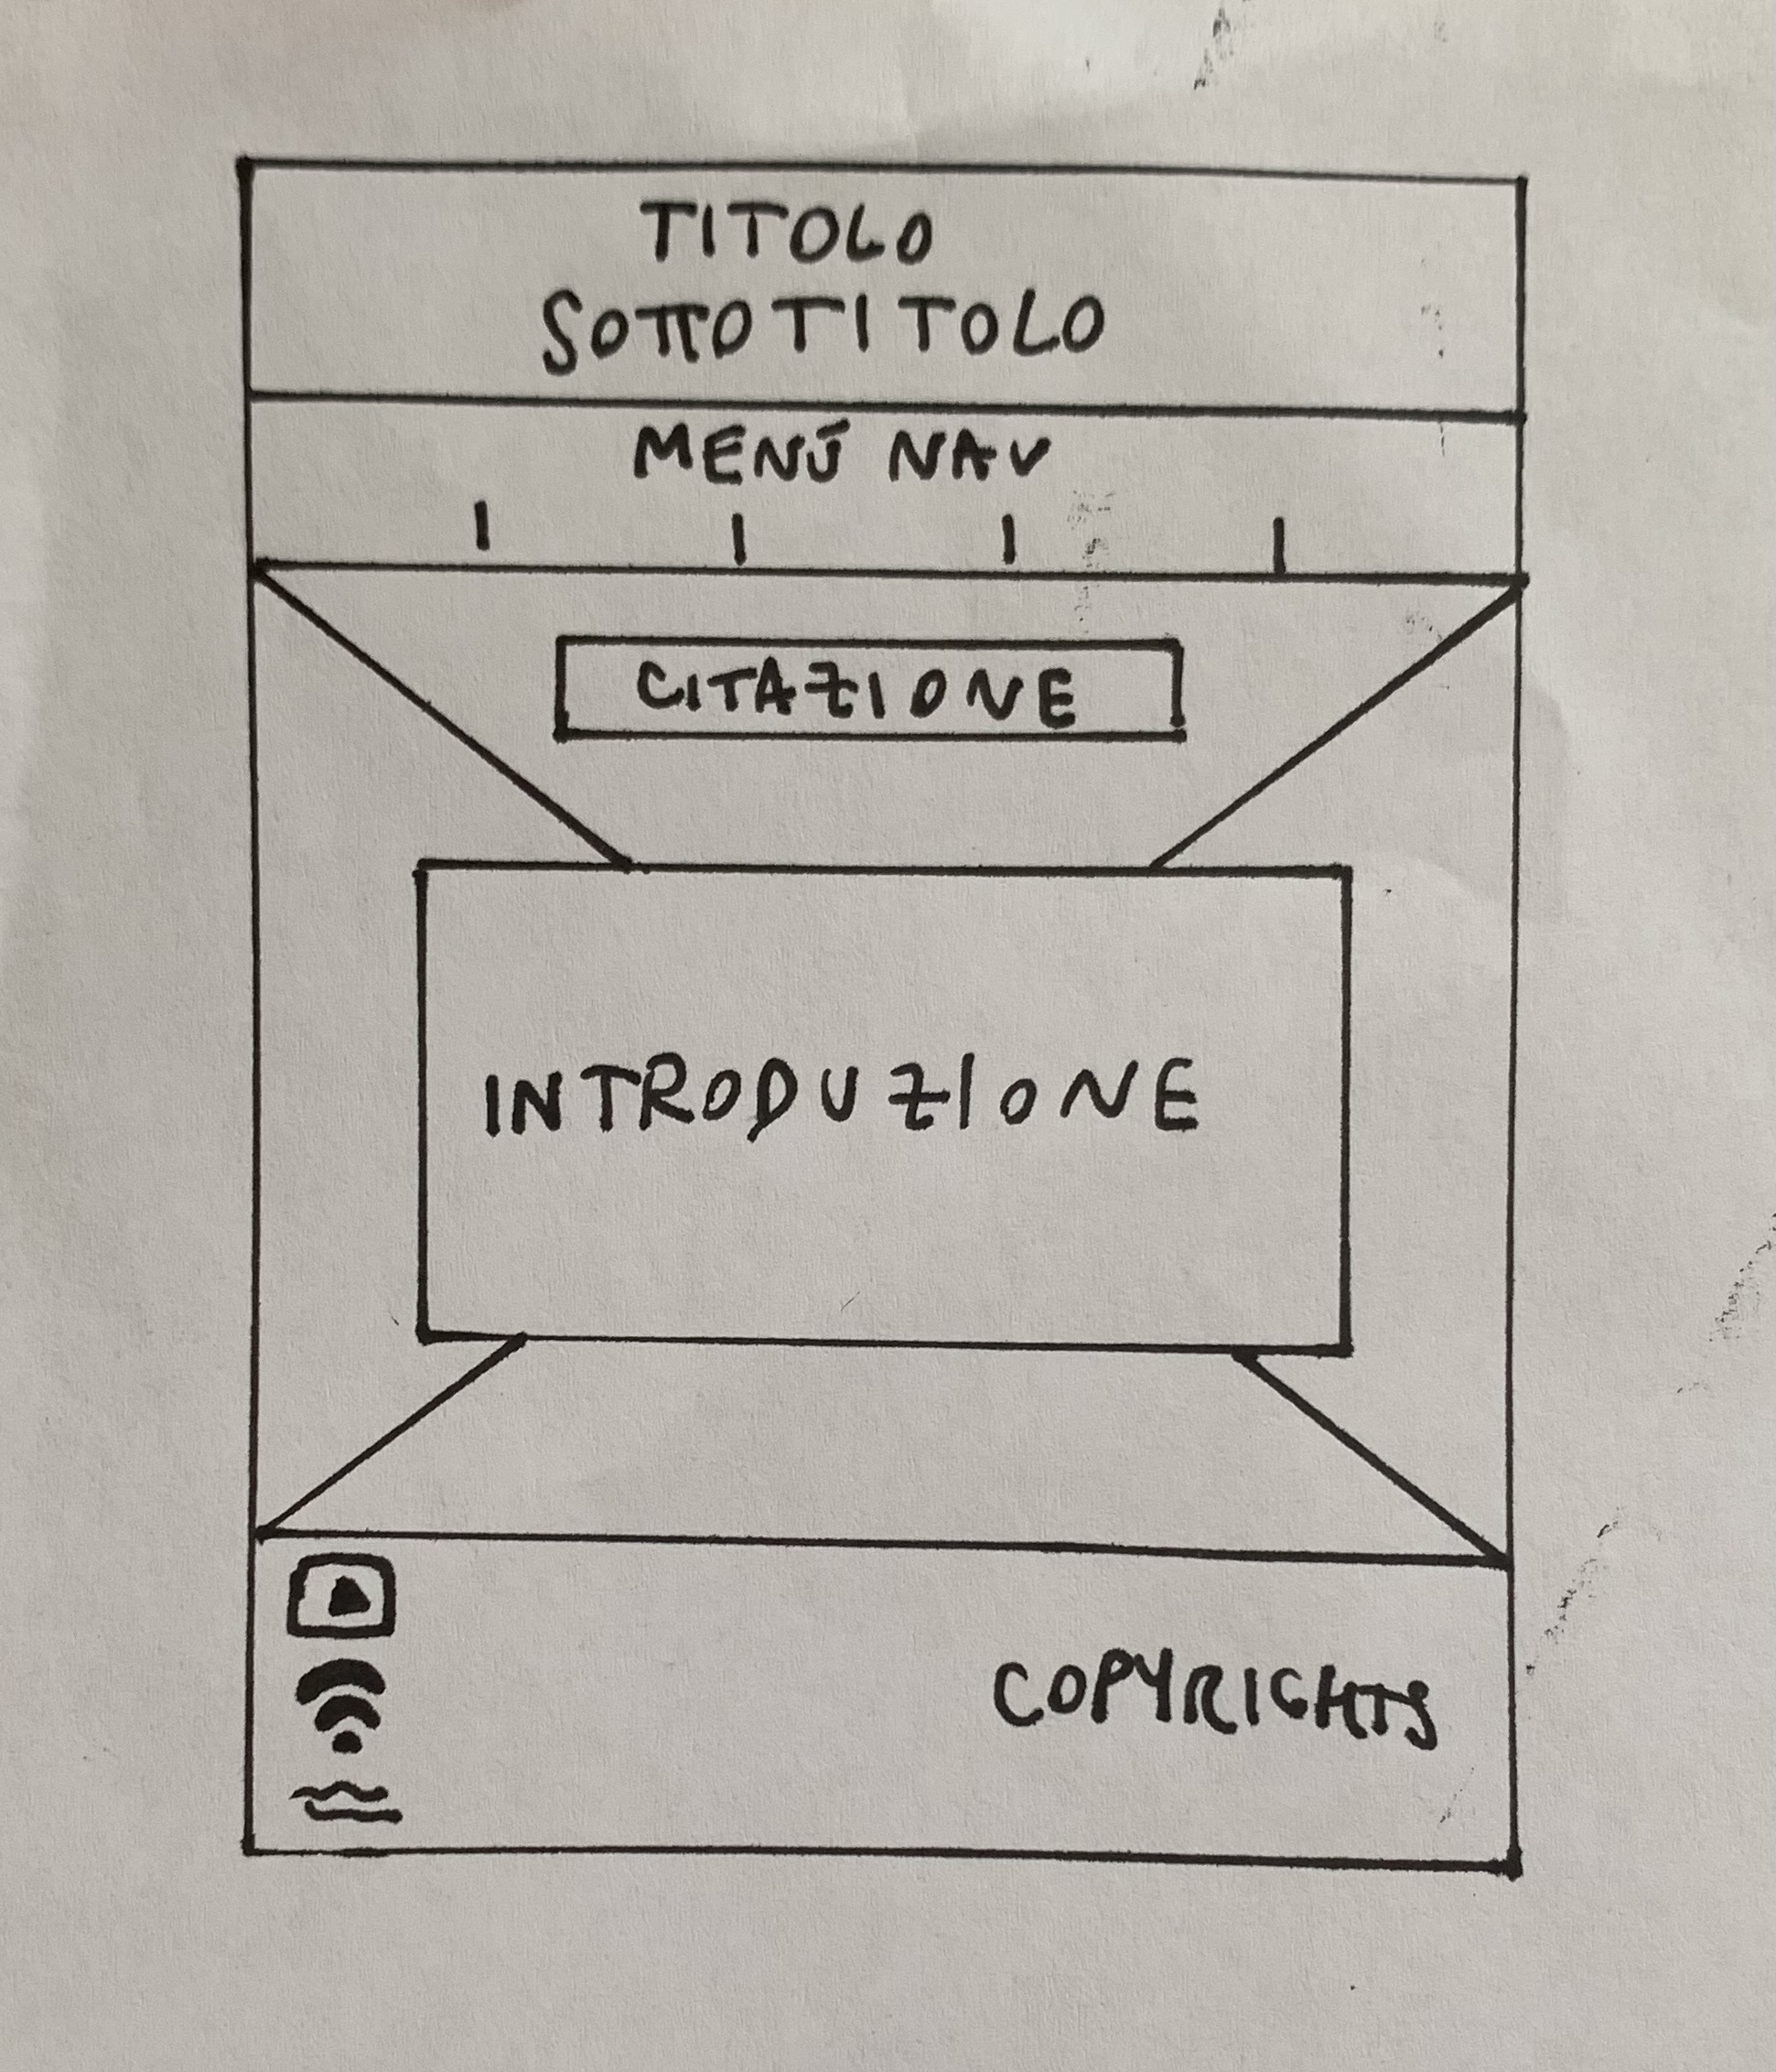 TITOLO
SOTTOTITOLO
MENÚ NAV
CITAZIONE
INTRODUZIONE
COPYRIGHTS